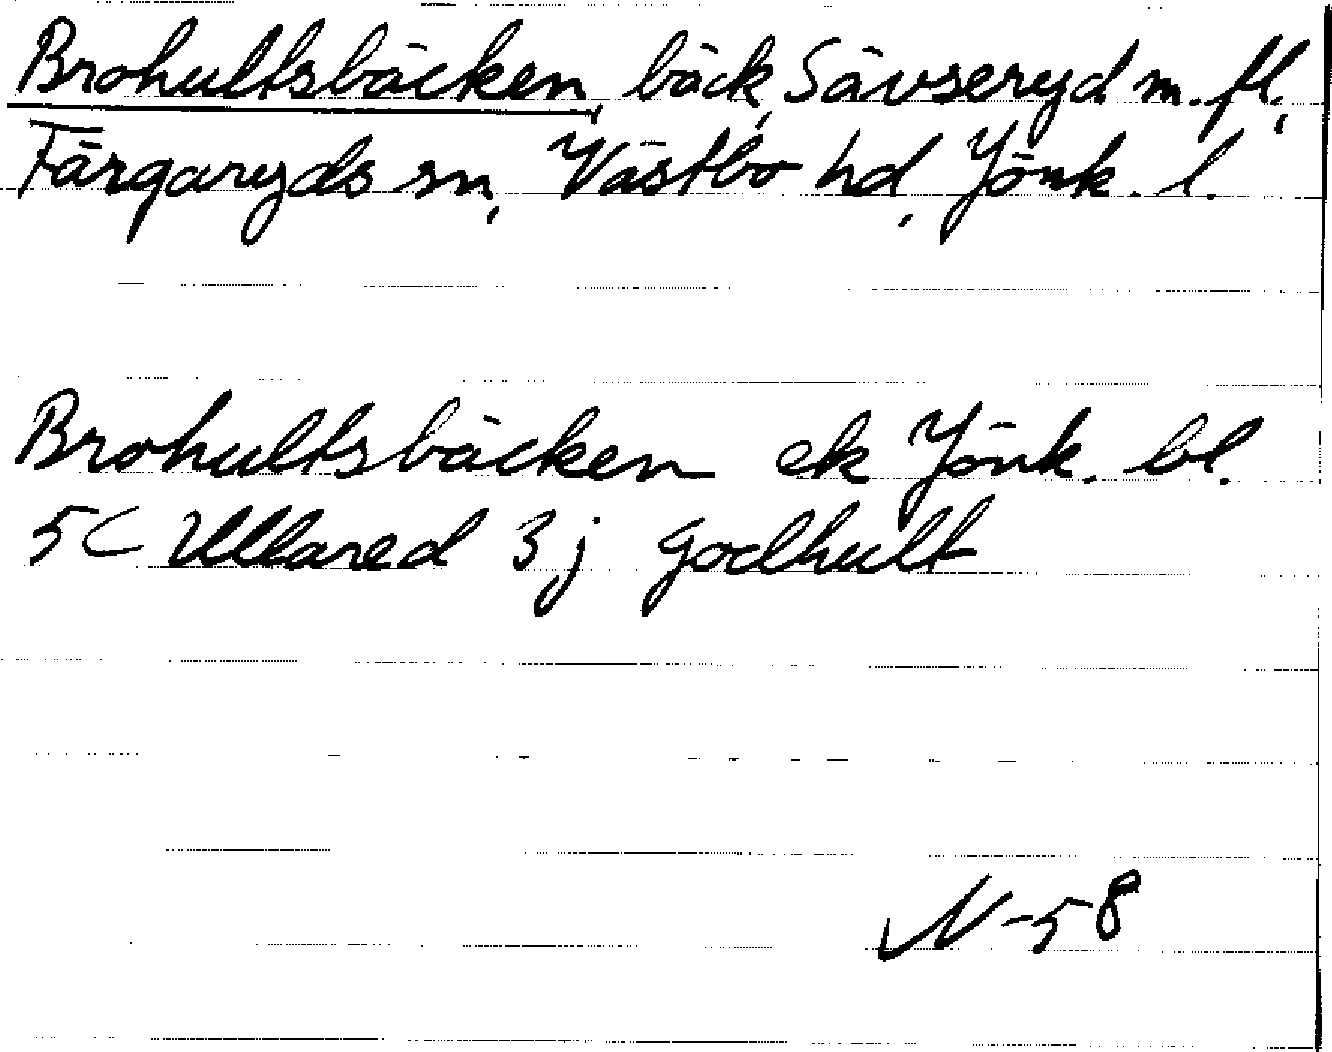 Brohultsbäcken, bäck, Sävseryd m. fl.,
Färgaryds sn, Västbo hd, Jönk. l.
Brohultsbäcken ek Jönk. bl.
5C Ullared 3j Godhult
N-58